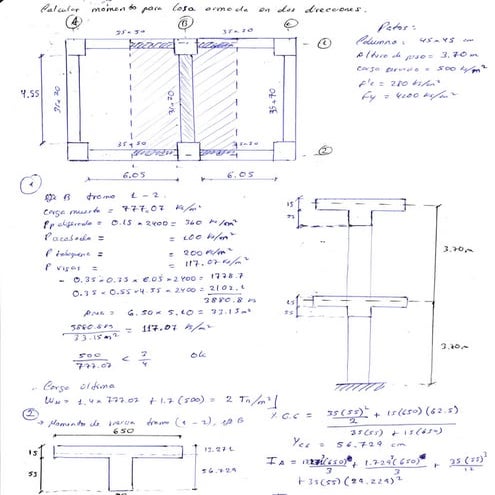 Calcular momento para losa armada en dos direcciones.
A B C
35x50 35x50
1
Datos:
Columna: 45x45 cm
Altura de piso = 3.70 m
carga = 500 kg/m²
f'c = 280 kg/cm²
Fy = 4200 kg/cm²
4.55
35x70 35x70 35x70
35x50
2
6.05 6.05
1
B tramo 1-2.
carga muerta = 777.07 kg/m²
= 0.15 x 2400 = 360 kg/m²
P acabado = = 100 kg/m²
P tabiques = = 200 kg/m²
P vigas = = 117.07 kg/m²
- 0.35 x 0.35 x 6.05 x 2400 = 1778.7
0.35 x 0.55 x 4.55 x 2400 = 2102.1
3880.8 kg
= 6.50 x 5.10 = 33.15 m²
3880.8 kg
33.15 m²
= 117.07 kg/m²
500
777.07
< 3
4
ok
15
55
3.70 m
15
55
3.70 m
Carga última
Wu = 1.4 x 777.07 + 1.7 (500) = 2 Tn/m²
2
Momento de inercia tramo (1-2), B
650
15
55
13.271
56.729
Y C.C = 35(55)²
2
+ 15(650)(62.5)
35(55) + 15(650)
= 56.729 cm
+ 1.729³(650)
3
+ 35(55)³
12
+ 35(55)(29.229)²